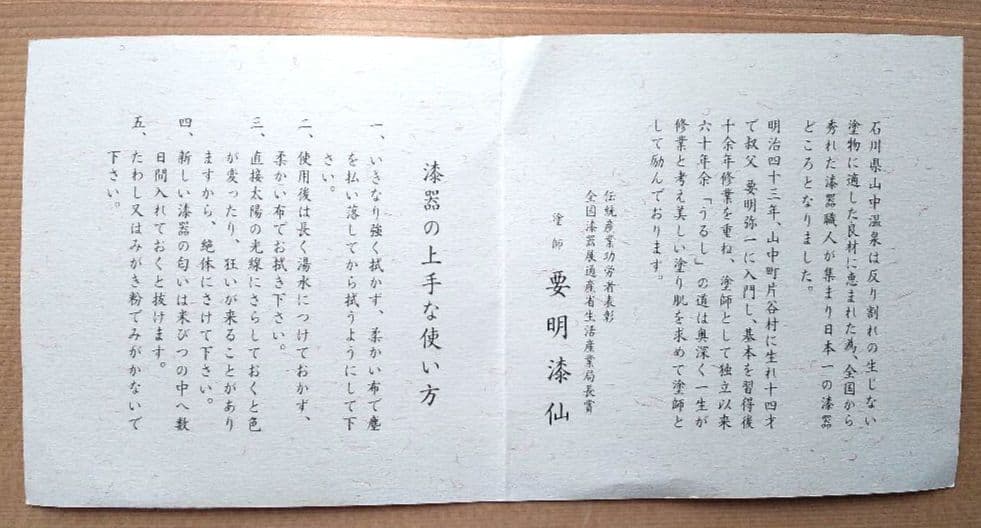 石川県山中温泉は反り割れの生じない
塗物に適した良材に恵まれた為、全国から
秀れた漆器職人が集まり日本一の漆器
どころとなりました。
明治四十三年、山中町片谷村に生れ十四才
で叔父 要明弥一に入門し、基本を習得後
十余年修業を重ね、塗師として独立以来
六十年余「うるし」の道は奥深く一生が
修業と考え美しい塗り肌を求めて塗師と
して励んでおります。
伝統産業功労者表彰
全国漆器展通産省生活産業局長賞
塗師 要明漆仙
漆器の上手な使い方
一、いきなり強く拭かず、柔かい布で塵
を払い落してから拭うようにして下
さい。
二、使用後は長く湯水につけておかず、
柔かい布でお拭き下さい。
三、直接太陽の光線にさらしておくと色
が変ったり、狂いが来ることがあり
ますから、絶体にさけて下さい。
四、新しい漆器の匂いは米びつの中へ数
日間入れておくと抜けます。
五、たわし又はみがき粉でみがかないで
下さい。